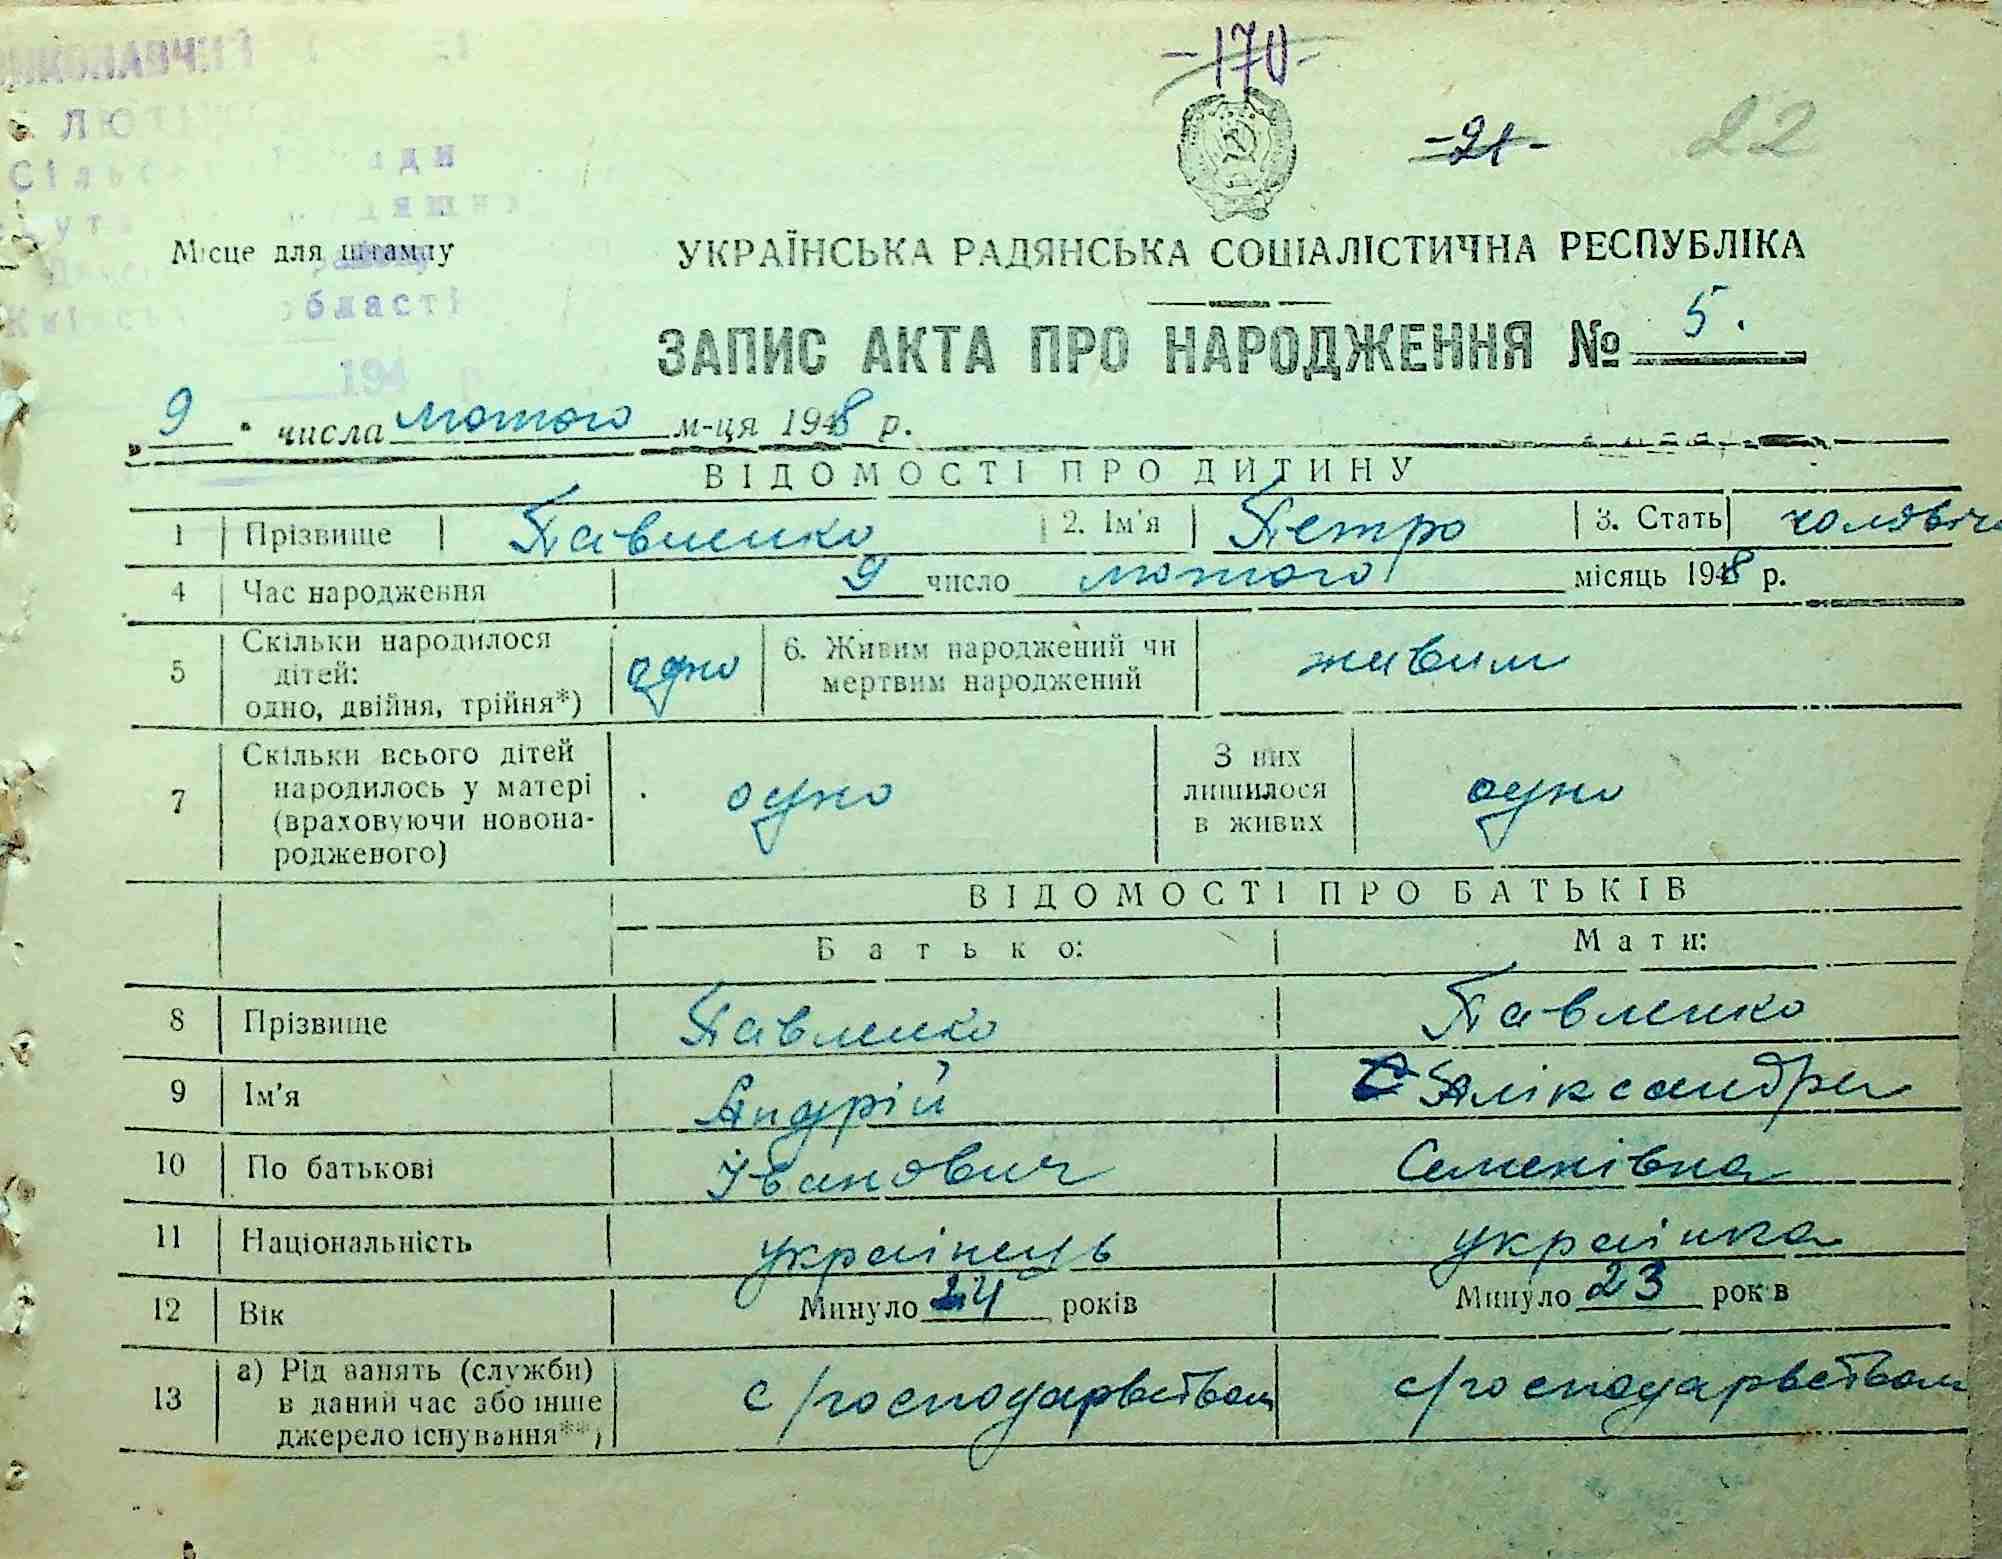 -170-
-21-
22
ВИКОНАВЧИЙ
ЛЮТ
Місце для штампу
області
194
УКРАЇНСЬКА РАДЯНСЬКА СОЦІАЛІСТИЧНА РЕСПУБЛІКА
ЗАПИС АКТА ПРО НАРОДЖЕННЯ № 5.
„ 9 " числа лютого м-ця 1948 р.
ВІДОМОСТІ ПРО ДИТИНУ
1 Прізвище Павленко 2. Ім'я Петро 3. Стать чоловіча
4 Час народження 9 число лютого місяць 1948 р.
5 Скільки народилося дітей: одно, двійня, трійня*) одно 6. Живим народжений чи мертвим народжений живим
7 Скільки всього дітей народилось у матері (враховуючи новонародженого) одно З них лишилося в живих одно
ВІДОМОСТІ ПРО БАТЬКІВ
Батько: Мати:
8 Прізвище Павленко Павленко
9 Ім'я Андрій Аліксандра
10 По батькові Іванович Семенівна
11 Національність українець українка
12 Вік Минуло 24 років Минуло 23 рок в
13 а) Рід занять (служби) в даний час або інше джерело існування**) с/господарвством с/господарвством